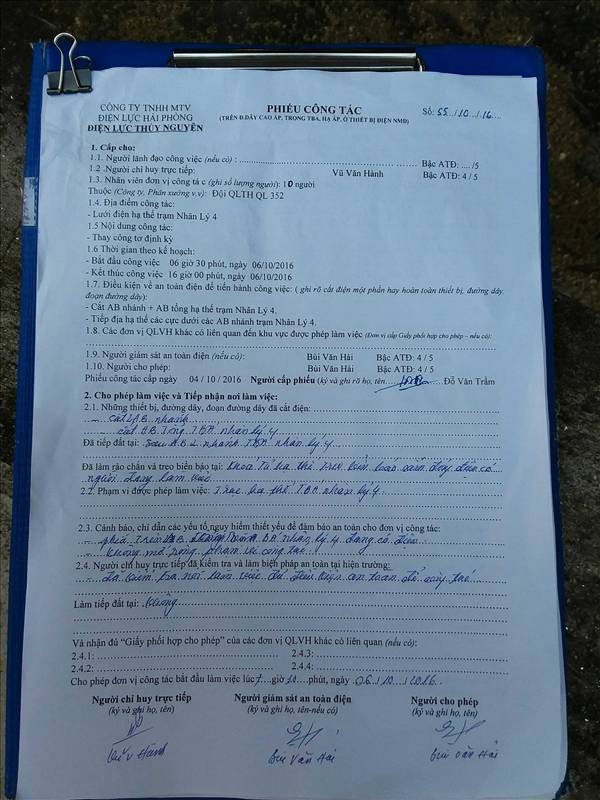 CÔNG TY TNHH MTV
ĐIỆN LỰC HẢI PHÒNG
ĐIỆN LỰC THỦY NGUYÊN
PHIẾU CÔNG TÁC
(TRÊN Đ.DÂY CAO ÁP, TRONG TBA, HẠ ÁP, Ở THIẾT BỊ ĐIỆN NMĐ)
Số: 55../10../16....
1. Cấp cho:
1.1. Người lãnh đạo công việc (nếu có) : .......... Bậc ATĐ: .... /5
1.2 .Người chỉ huy trực tiếp: Vũ Văn Hành Bậc ATĐ: 4 / 5
1.3. Nhân viên đơn vị công tá c (ghi số lượng người): 10 người
Thuộc (Công ty, Phân xưởng v.v): Đội QLTH QL 352
1.4. Địa điểm công tác:
- Lưới điện hạ thế trạm Nhân Lý 4
1.5 Nội dung công tác:
- Thay công tơ định kỳ
1.6 Thời gian theo kế hoạch:
- Bắt đầu công việc 06 giờ 30 phút, ngày 06/10/2016
- Kết thúc công việc 16 giờ 00 phút, ngày 06/10/2016
1.7. Điều kiện về an toàn điện để tiến hành công việc: ( ghi rõ cắt điện một phần hay hoàn toàn thiết bị, đường dây.
đoạn đường dây):
- Cắt AB nhánh + AB tổng hạ thế trạm Nhân Lý 4.
- Tiếp địa hạ thế các cực dưới các AB nhánh trạm Nhân Lý 4.
1.8. Các đơn vị QLVH khác có liên quan đến khu vực được phép làm việc (Đơn vị cấp Giấy phối hợp cho phép – nếu có):
1.9. Người giám sát an toàn điện (nếu có): Bùi Văn Hải Bậc ATĐ: 4 / 5
1.10. Người cho phép: Bùi Văn Hải Bậc ATĐ: 4 / 5
Phiếu công tác cấp ngày 04 / 10 / 2016 Người cấp phiếu (ký và ghi rõ họ, tên.... Đỗ Văn Trầm
2. Cho phép làm việc và Tiếp nhận nơi làm việc:
2.1. Những thiết bị, đường dây, đoạn đường dây đã cắt điện:
- Cắt AB nhánh
- Cắt AB Tổng TBA nhân lý 4
Đã tiếp đất tại: Sau AB nhánh TBA nhân lý 4
Đã làm rào chắn và treo biển báo tại: Khóa Tủ hạ thế Treo biển báo cấm đóng điện có
người đang làm việc
2.2. Phạm vi được phép làm việc: Trục hạ thế TBA nhân lý 4
2.3. Cảnh báo, chỉ dẫn các yếu tố nguy hiểm thiết yếu để đảm bảo an toàn cho đơn vị công tác:
- phía Trên AB nhân lý 4 đang có điện
- không mở rộng phạm vi công tác
2.4. Người chỉ huy trực tiếp đã kiểm tra và làm biện pháp an toàn tại hiện trường:
- Đã kiểm tra nơi làm việc đủ điều kiện an toàn để công tác
Làm tiếp đất tại: Không
Và nhận đủ “Giấy phối hợp cho phép” của các đơn vị QLVH khác có liên quan (nếu có):
2.4.1: .......... 2.4.3: ..........
2.4.2: .......... 2.4.4: ..........
Cho phép đơn vị công tác bắt đầu làm việc lúc 7...giờ 10....phút, ngày .06../10.../2016...
Người chỉ huy trực tiếp Người giám sát an toàn điện Người cho phép
(ký và ghi họ, tên) (ký và ghi họ, tên-nếu có) (ký và ghi họ, tên)
Vũ V Hành Bùi Văn Hải Bùi Văn Hải